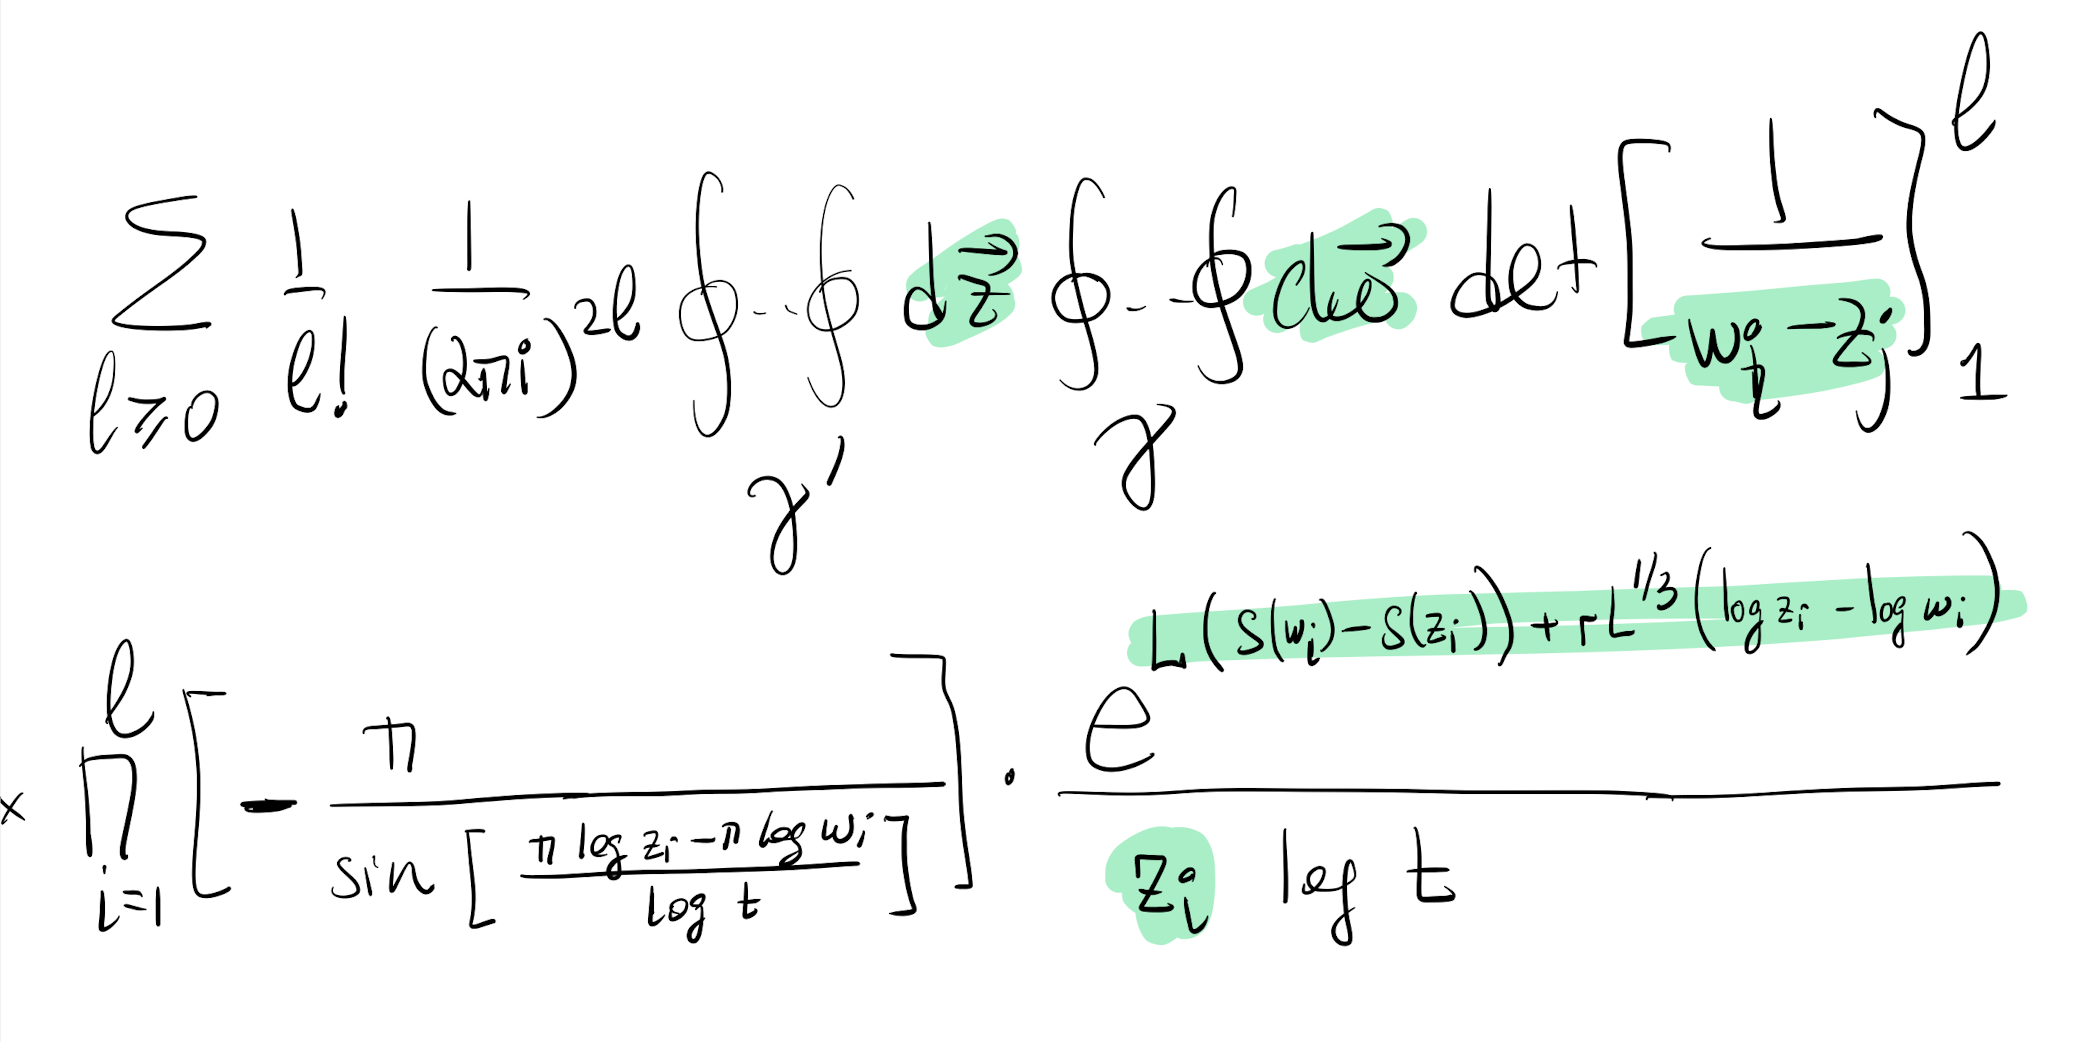 \sum_{\ell \geqslant 0} \frac{1}{\ell!} \frac{1}{(2\pi i)^{2\ell}} \oint \cdots \oint_{\gamma'} d\vec{z} \oint \cdots \oint_{\gamma} d\vec{w} \det \left[ \frac{1}{w_i - z_j} \right]_1^{\ell}
\times \prod_{i=1}^{\ell} \left[ - \frac{\pi}{\sin \left[ \frac{\pi \log z_i - \pi \log w_i}{\log t} \right]} \right] \cdot \frac{e^{L(S(w_i) - S(z_i)) + r L^{1/3} (\log z_i - \log w_i)}}{z_i \log t}